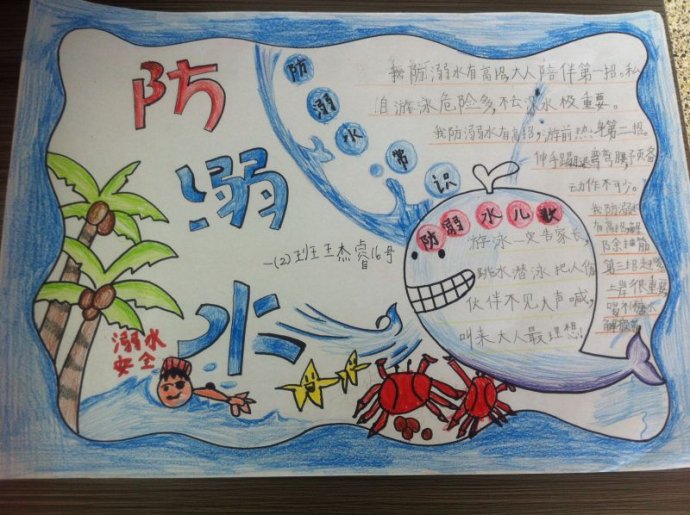 防溺水
防溺水常识
我防溺水有高招大人陪伴第一招。私
自游泳危险多,不去冰水极重要。
我防溺水有高招,游前热身第二招。
伸手踢腿弯弯腰,予页备
动作不可少。
我防溺水
有高招
第三招
上岸很重要
防溺水儿歌
游泳一定告家长,
跳水潜泳把人伤
伙伴不见大声喊,
叫来大人最理想!
一(2)班王杰睿16号
溺水
安全